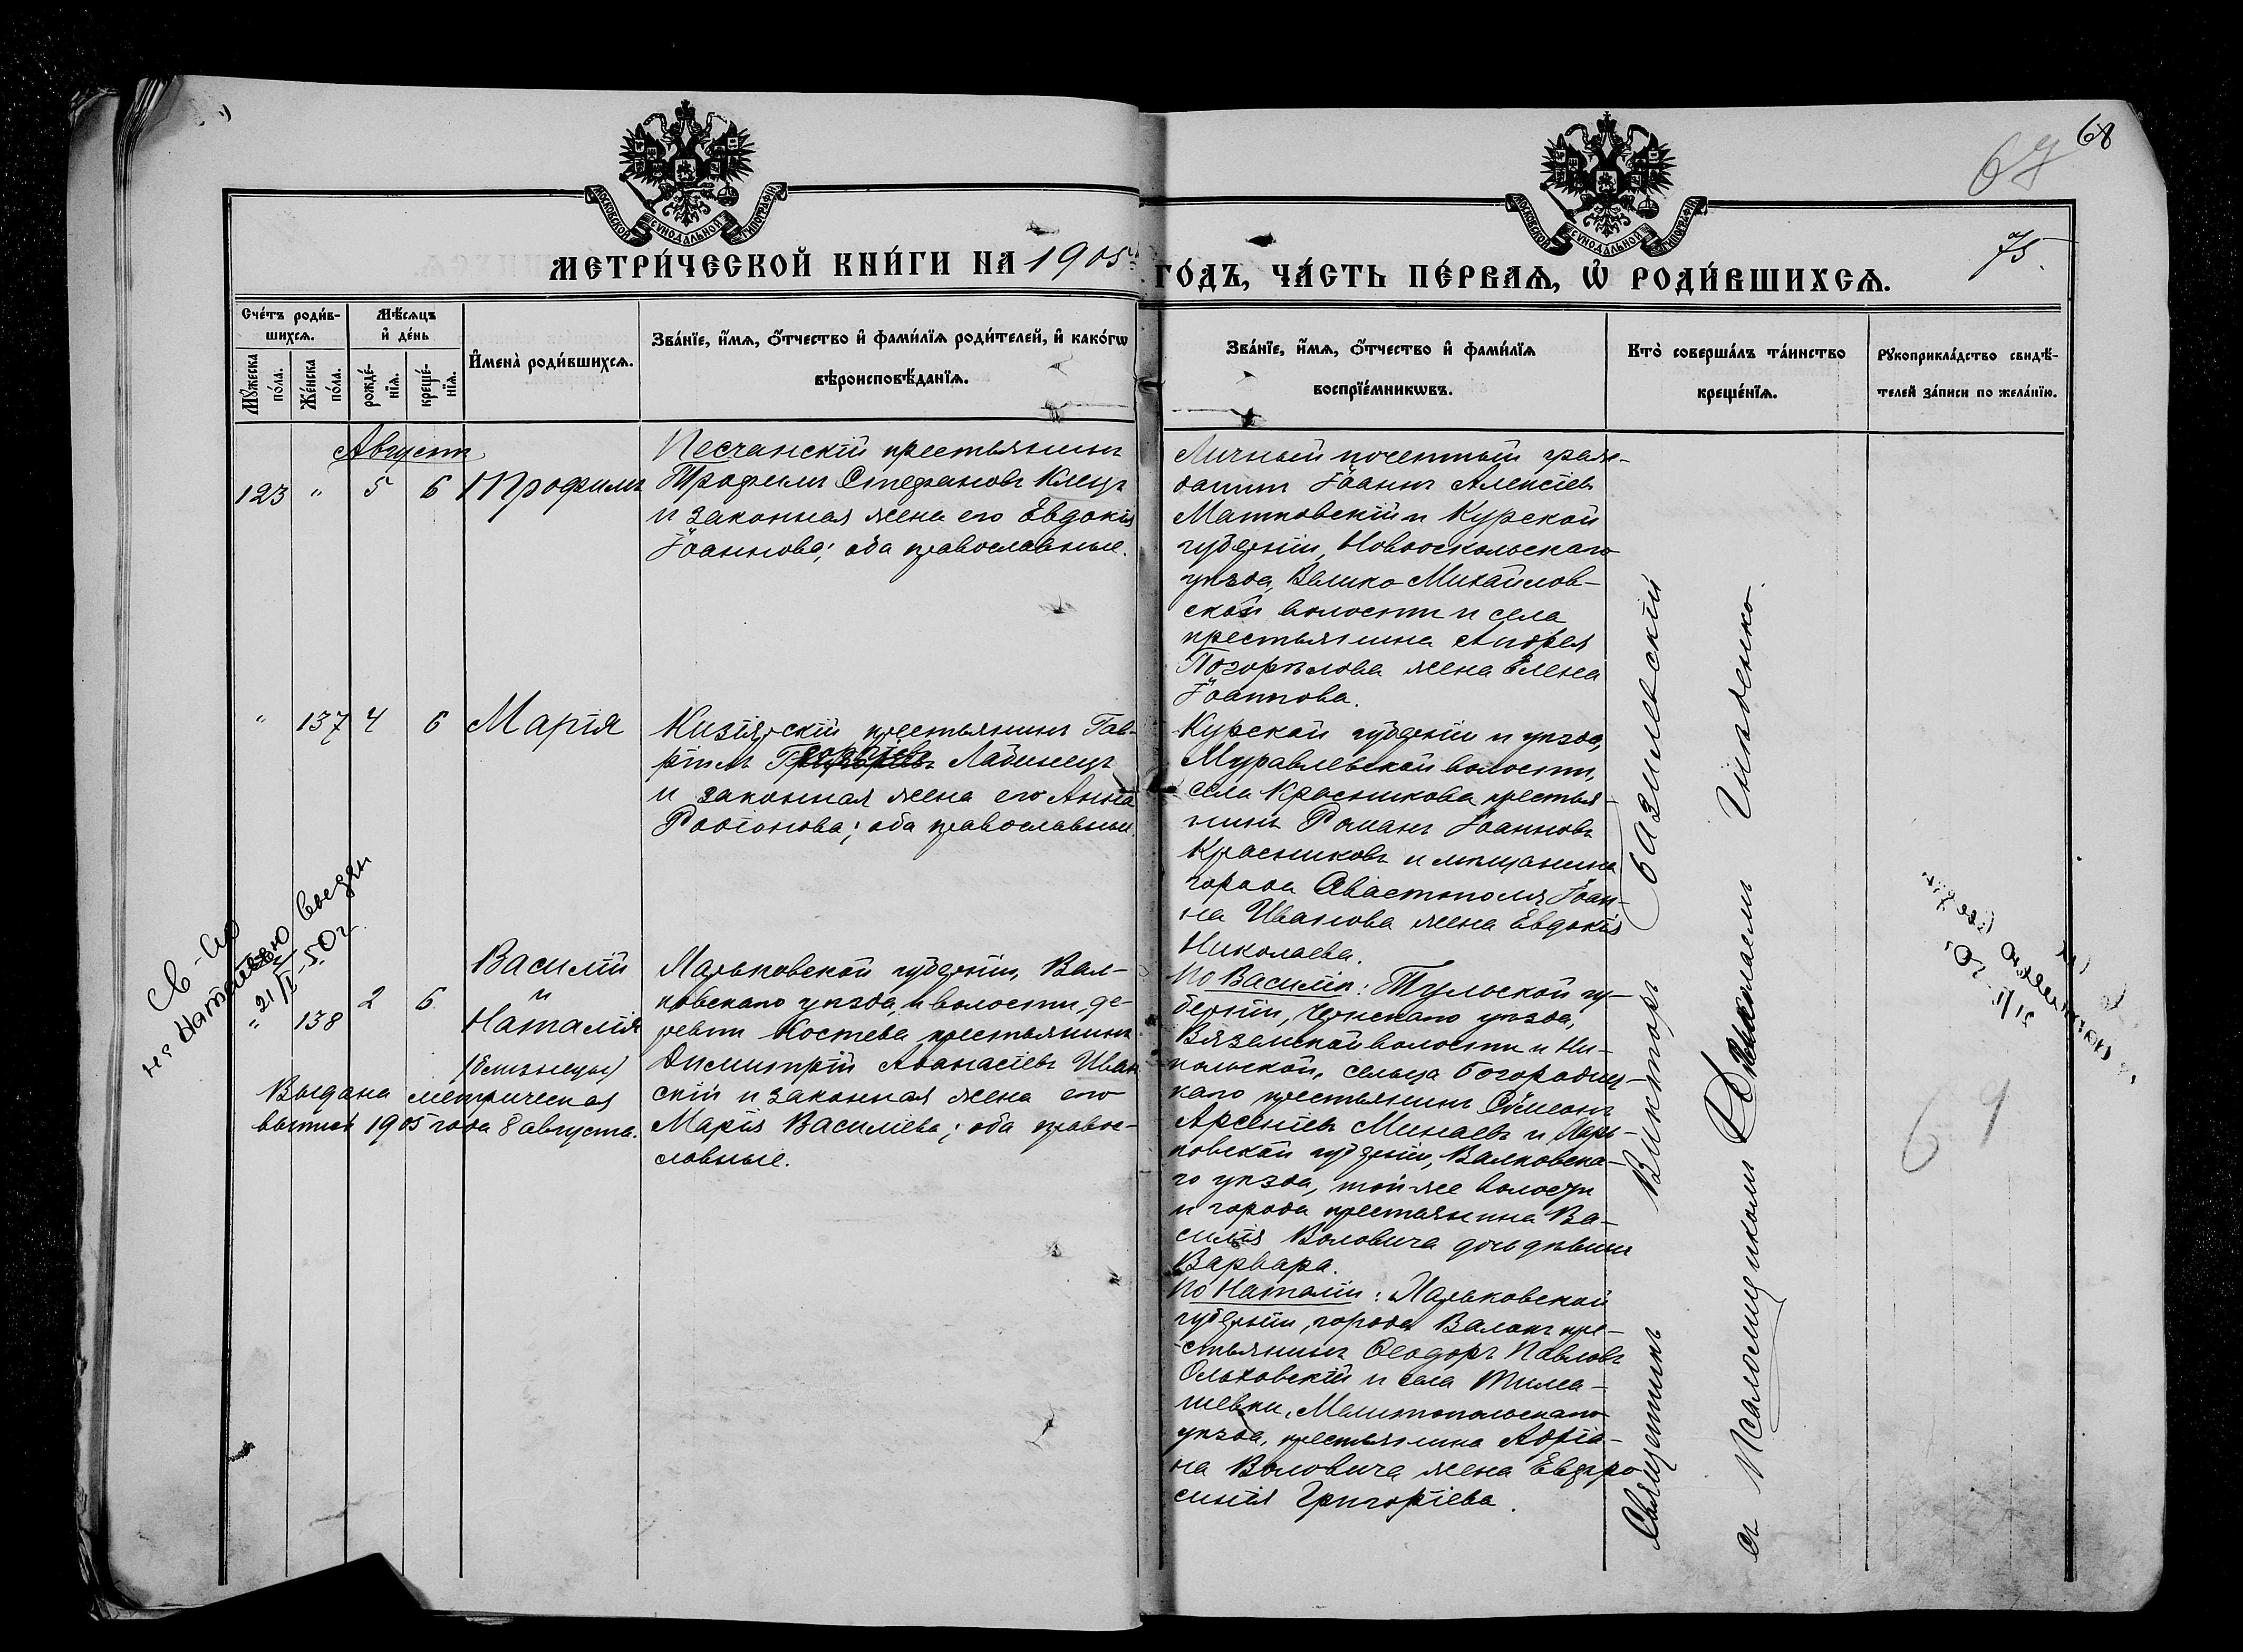 68
67
75.
МОСКОВСКОЙ СѴНОДАЛЬНОЙ ТИПОГРАФІИ
МОСКОВСКОЙ СѴНОДАЛЬНОЙ ТИПОГРАФІИ
МЕТРИ́ЧЕСКОЙ КНИ́ГИ НА 1905й ГО́ДЪ, ЧА́СТЬ ПЕ́РВАѦ, Ѡ҆ РОДИ́ВШИХСѦ.
Сче́тъ роди́в-
шихсѧ.
Мѣ́сѧцъ
и҆ де́нь
Мꙋ́жеска по́ла.
Же́нска по́ла.
рожде́-
нїѧ.
креще́-
нїѧ.
И҆мена̀ роди́вшихсѧ.
Зва́нїе, и҆́мѧ, ѻ҆́тчество и҆ фами́лїѧ роди́телей, и҆ како́гѡ
вѣроисповѣ́данїѧ.
Зва́нїе, и҆́мѧ, ѻ҆́тчество и҆ фами́лїѧ
воспрїе́мникѡвъ.
Кто̀ соверша́лъ та́инство
креще́нїѧ.
Рꙋкоприкла́дство свидѣ́-
телей за́писи по жела́нїю.
Августъ
123 " 5 6 Трофимъ
Песчанскій крестьянинъ
Трофимъ Стефановъ Клецъ
и законная жена его Евдокія
Іоаннова; оба православные.
Личный почетный граж-
данинъ Іоаннъ Алексіевъ
Матковскій и Курской
губерніи, Новооскольскаго
уѣзда, Велико-Михайлов-
ской волости и села
крестьянина Андрея
Погорѣлова жена Елена
Іоаннова.
" 137 4 6 Марія
Кизіярскій крестьянинъ Гав-
ріилъ Георгіевъ Лабинецъ
и законная жена его Анна
Родіонова; оба православные.
Курской губерніи и уѣзда,
Муравлевской волости,
села Красникова крестья-
нинъ Романъ Іоанновъ
Красниковъ и мѣщанина
города Севастополя Іоан-
на Иванова жена Евдокія
Николаева.
" 138 2 6
Василій
и
Наталія
(близнецы)
Выдана метрическая
выпись 1905 года 8 августа.
Харьковской губерніи, Вал-
ковскаго уѣзда, и волости, де-
ревни Костева крестьянинъ
Димитрій Аѳанасіевъ Иван
скій и законная жена его
Марія Василіева; оба право-
славные.
По Василію: Тульской гу-
берніи, Чернскаго уѣзда,
Вяземской волости и Ни-
кольской, сельца Богородиц-
каго крестьянинъ Сѵмеонъ
Арсеніевъ Минаевъ и Харь-
ковской губерніи, Валковска-
го уѣзда, той-же волости
и города крестьянина Ва-
силія Воловича дочь дѣвица
Варвара.
По Наталіи: Харьковской
губерніи, города Валокъ кре-
стьянинъ Ѳеодоръ Павловъ
Ольховскій и села Тима-
шевки, Мелитопольскаго
уѣзда, крестьянина Адріа-
на Воловича жена Евфро
синія Григоріева.
Священникъ Викторъ Базилевскій
съ Псаломщикомъ Гнѣденко.
Св-во
на Наталью выдан
21/II-50г.
69